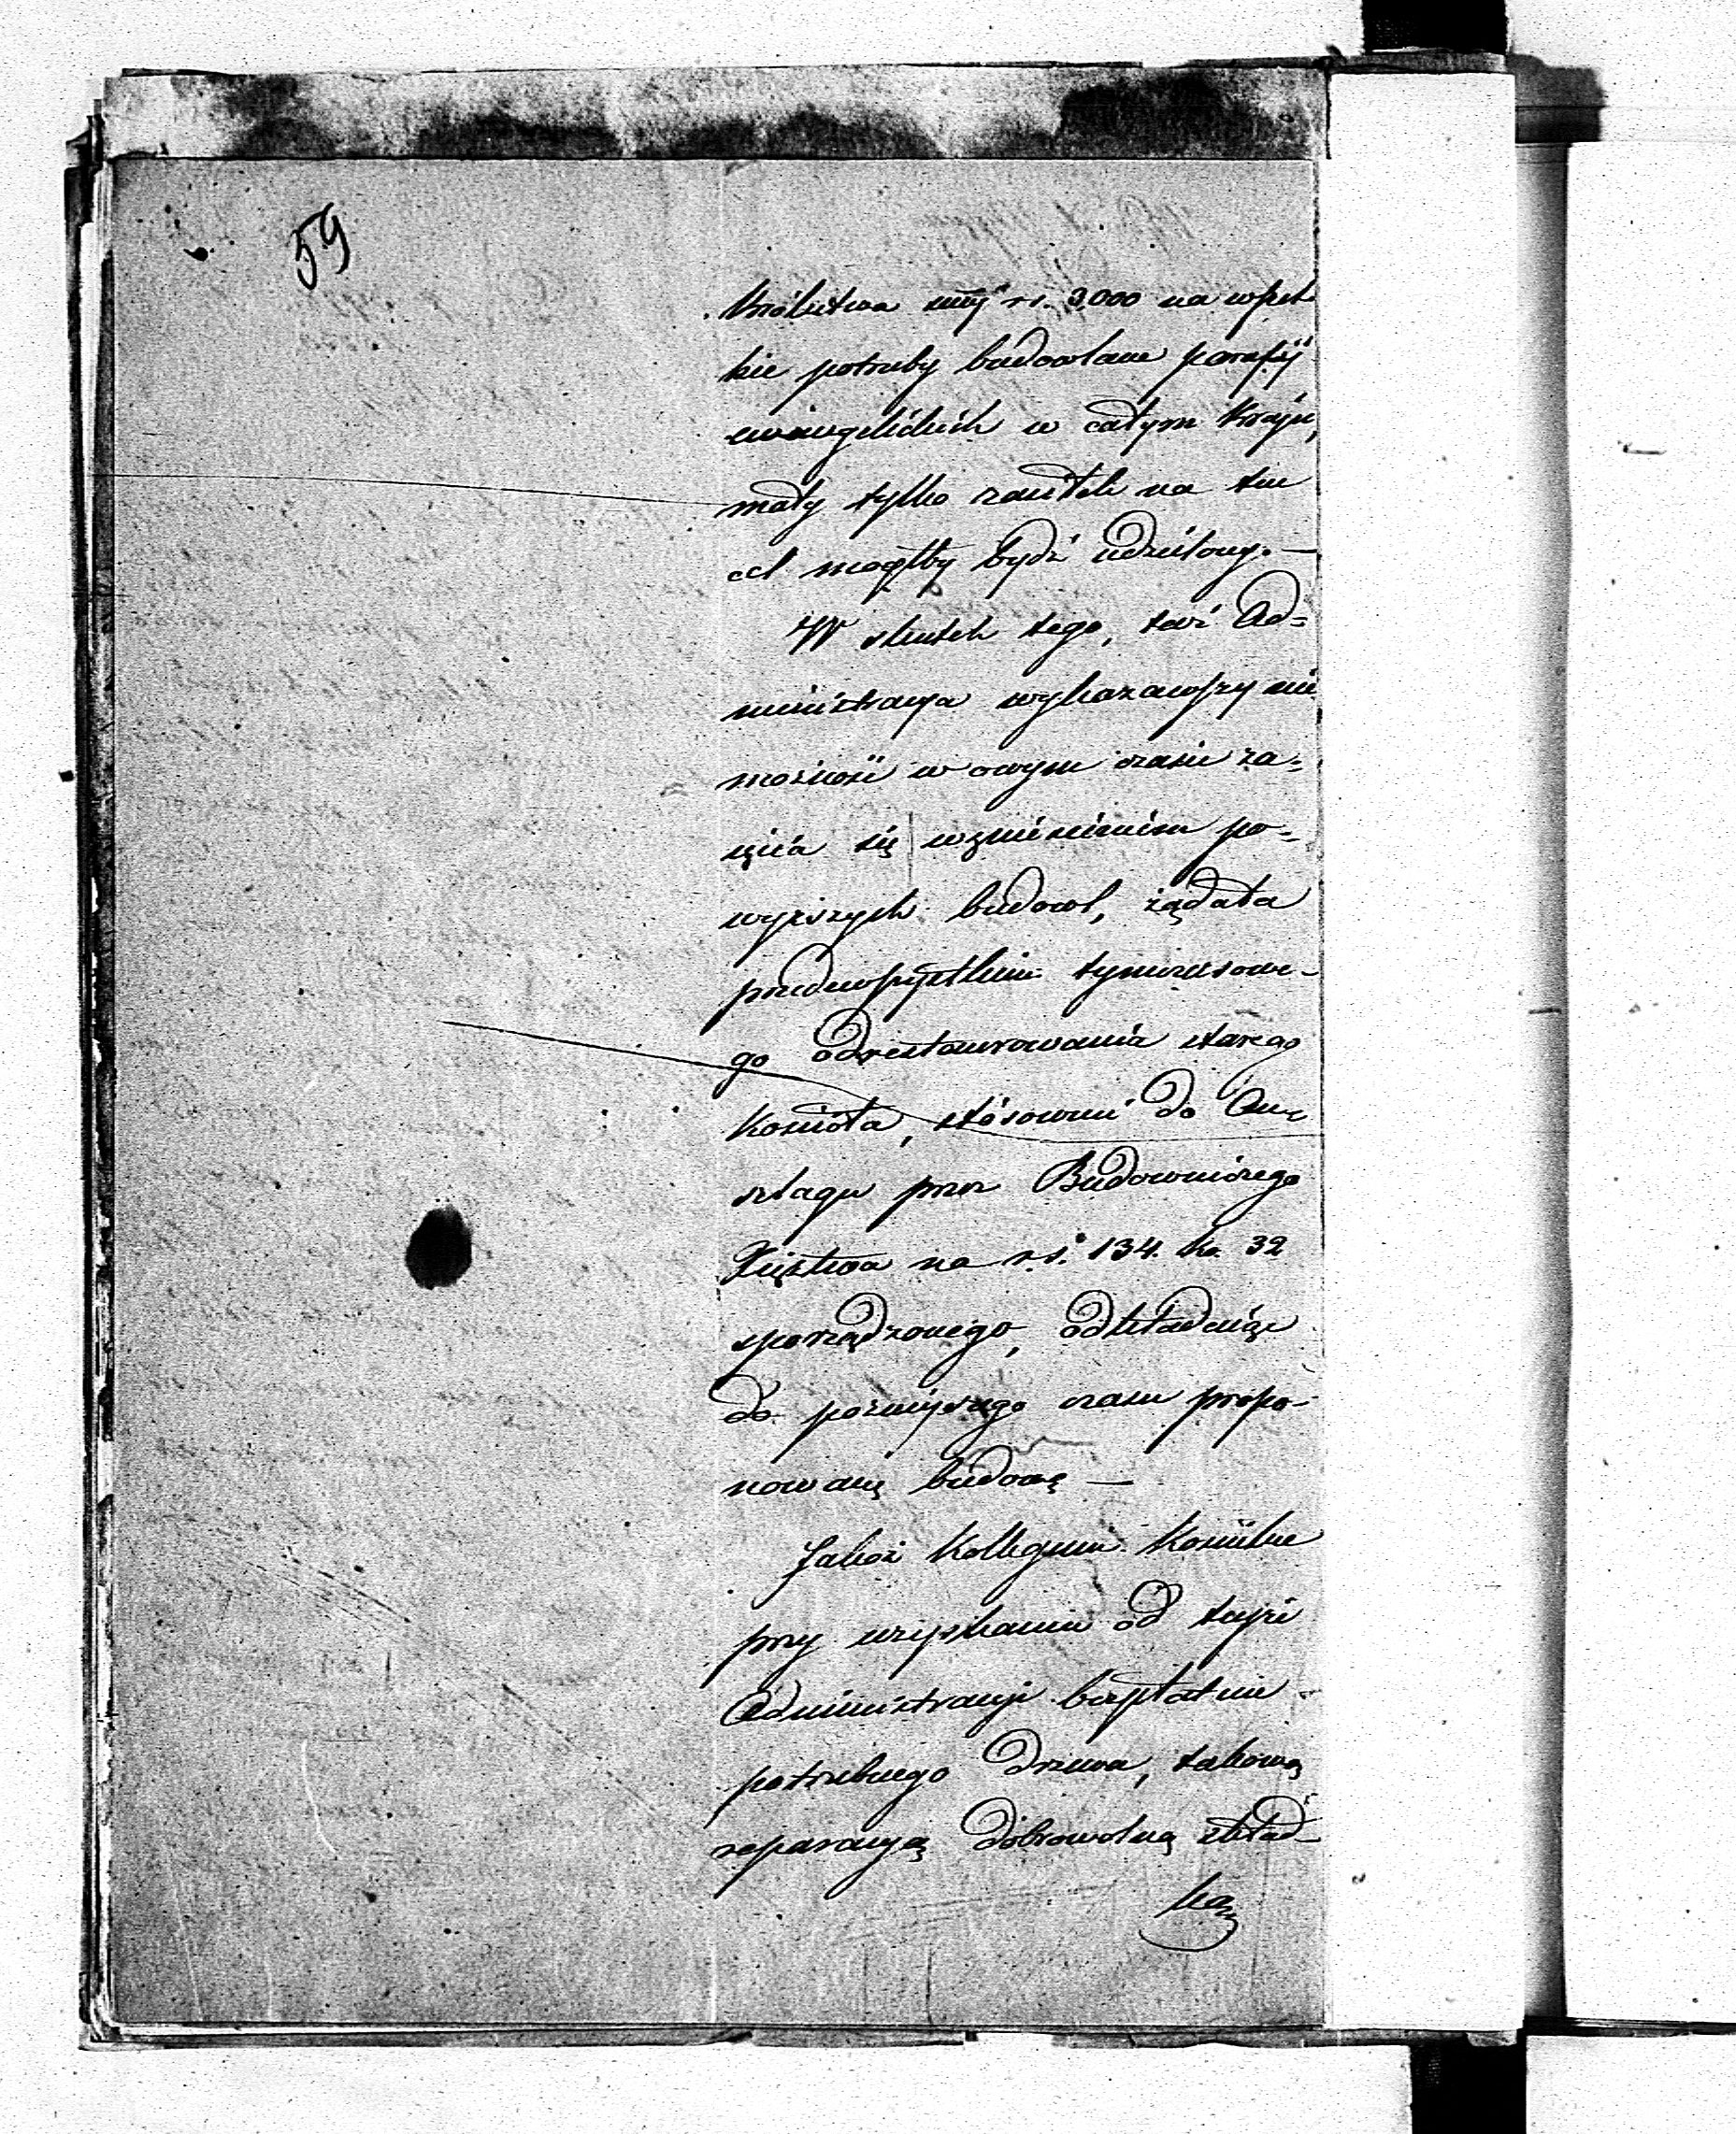 59
Królestwa summy rs. 3,000 na wszel
kie potrzeby budowlane parafij
ewangelickich w całym Kraju,
mały tylko zasiłek na ten
cel mógłby bydź udzielony. —
W skutek tego, taż Ad-
ministracya wykazawszy nie
możność w owym czasie za-
jęcia się wzniesieniem po-
wyższych budowl, żądała
przedewszystkiem tymczasowe-
go odrestaurowania starego
Kościoła, stósownie do An-
szlagu przez Budowniczego
Xięztwa na r.s. 134. ko. 32
sporządzonego, odkładając
do pozniejszego czasu propo-
nowaną budowę —
Jakoż Kollegium Kościelne
przy uzyskaniu od tejże
Administracyi bezpłatnie
potrzebnego drzewa, takową
reparacyą dobrowolną skład-
ką